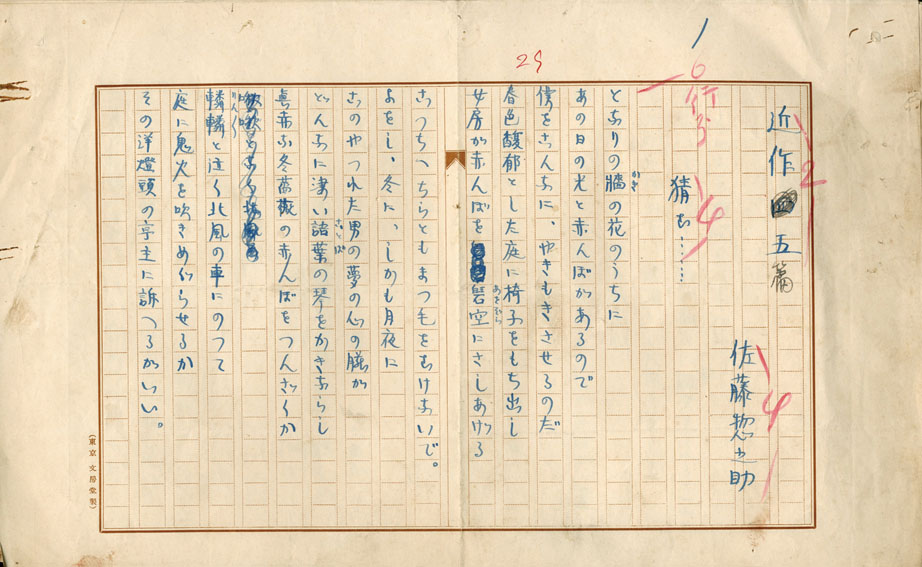 近作五篇
佐藤惣之助
猜む……
となりの牆の花のうちに
かき
あの日の光と赤んばがあるので
僕をこんなに、やきもきさせるのだ
春色馥郁とした庭に椅子をもち出し
女房が赤んばを碧空にさしあげる
あをぞら
こつちへちらともまつ毛をむけないで。
よをし、冬に、しかも月夜に
このやつれた男の夢の心の臓が
どんなに凄い諸葉の琴をかきならし
ことば
真赤な冬薔薇の赤んばをつんざくか
轔轔と泣く北風の車にのつて
りんりん
庭に鬼火を吹きめぐらせるか
その洋燈頭の亭主に訴へるがいい。
(東京 文房堂製)
1
6行分
2
4
4
29